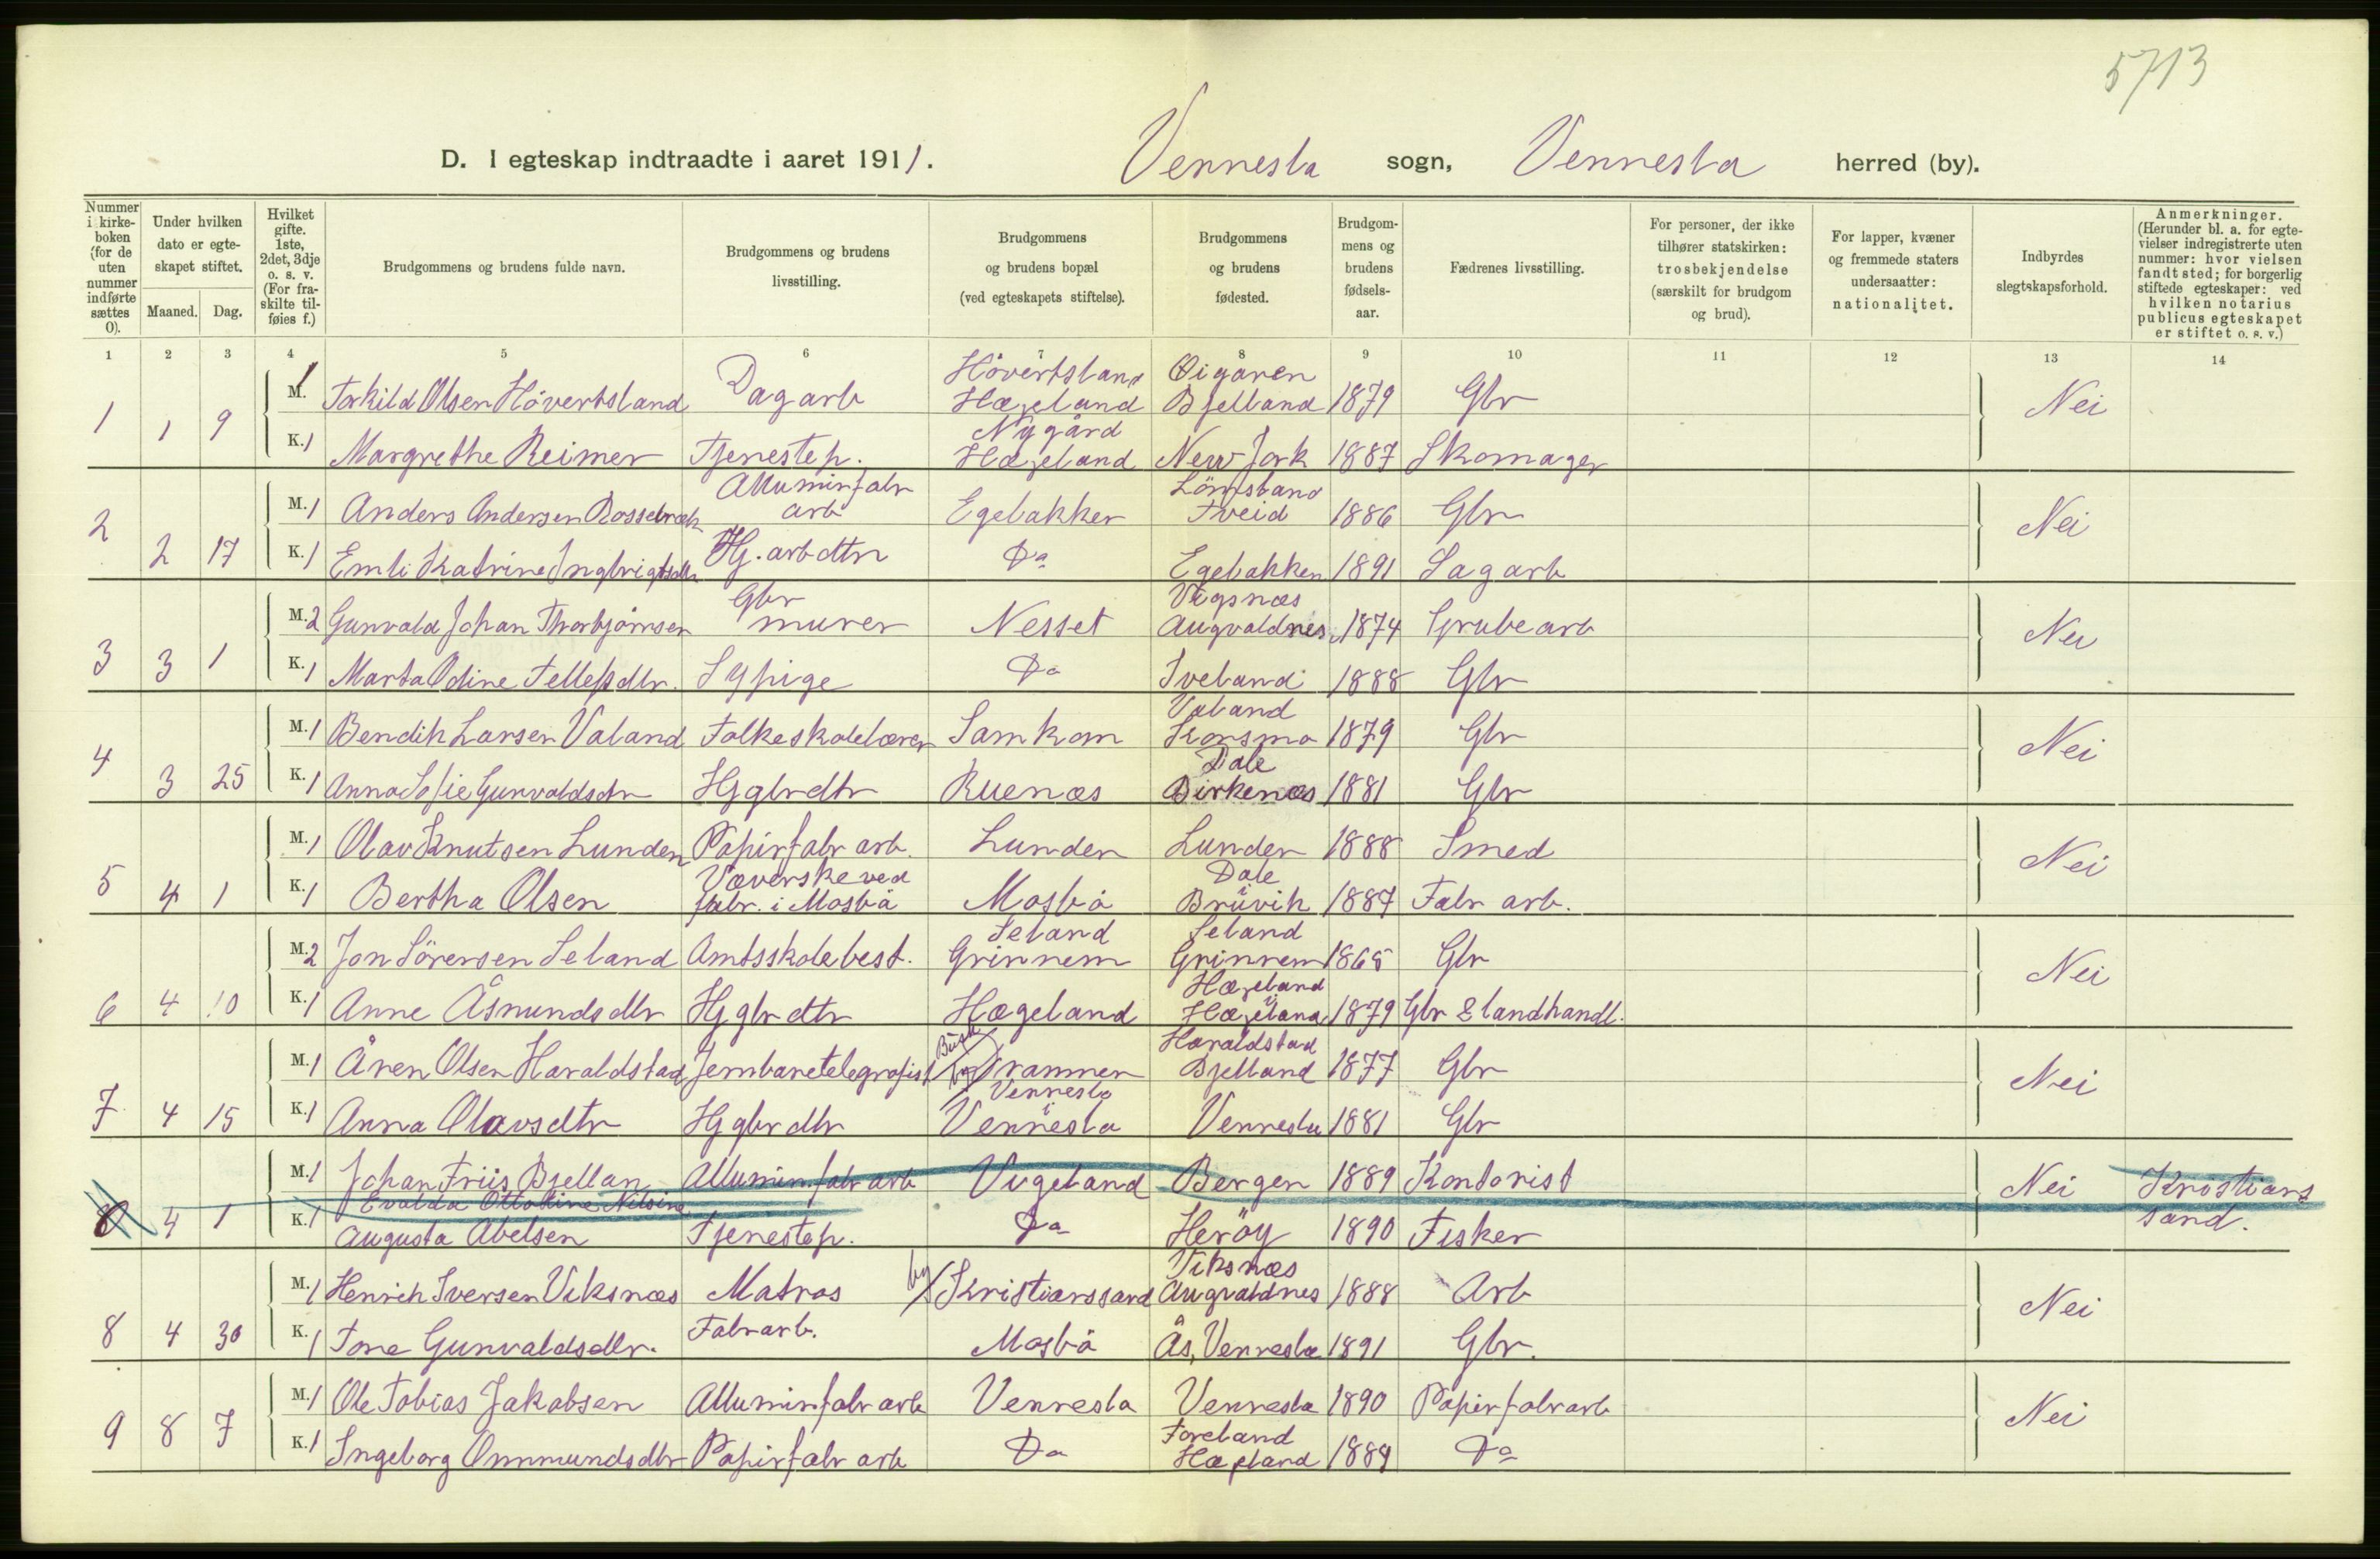 5713
D. I egteskap indtraadte i aaret 1911. Vennesla sogn, Vennesla herred (by).
Nummer i kirke-boken (for de uten nummer indførte sættes 0).
Under hvilken dato er egte-skapet stiftet.
Maaned. Dag.
Hvilket gifte. 1ste, 2det, 3dje o. s. v. (For fra-skilte til-føies f.)
Brudgommens og brudens fulde navn.
Brudgommens og brudens livsstilling.
Brudgommens og brudens bopæl (ved egteskapets stiftelse).
Brudgommens og brudens fødested.
Brudgom-mens og brudens fødsels-aar.
Fædrenes livsstilling.
For personer, der ikke tilhører statskirken: trosbekjendelse (særskilt for brudgom og brud).
For lapper, kvæner og fremmede staters undersaatter: nationalitet.
Indbyrdes slegtskapsforhold.
Anmerkninger. (Herunder bl. a. for egte-vielser indregistrerte uten nummer: hvor vielsen fandt sted; for borgerlig stiftede egteskaper: ved hvilken notarius publicus egteskapet er stiftet o. s. v.)
1 2 3 4 5 6 7 8 9 10 11 12 13 14
Høvertsland Øigaren
M. 1 Torkild Olsen Høvertsland Dagarb Hægeland Bjelland 1879 Gbr Nei
1 1 9
Nygård
K. 1 Margrethe Reimer Tjenestep. Hægeland New Jork 1887 Skomager
Alluminfabr Lömsland
M. 1 Anders Andersen arb Egebakken Tveid 1886 Gbr Nei
2 2 17
K. 1 Emli Katrine Ingbrigtsdtr Hj. arb dtr Do Egebakken 1891 Sagarb
Gbr Vigsnæs
M. 2 Gunvald Johan Thorbjørnsen murer Nesset Augvaldnes 1874 Grubearb Nei
3 3 1
K. 1 Marta Odine Tellefsdtr. Sypige Do Iveland 1888 Gbr
Valand
M. 1 Bendik Larsen Valand Folkeskolelærer Samkom Konsmo 1879 Gbr Nei
4 3 25
Dale
K. 1 Anna Sofie Gunvaldsdtr Hjgbrdtr Ruenæs Birkenæs 1881 Gbr
M. 1 Olav Knutsen Lunden Papirfabr arb. Lunden Lunden 1888 Smed Nei
5 4 1
Væverske ved Dale
K. 1 Bertha Olsen fabr. i Mosbå Mosbå i Bruvik 1887 Fabr arb.
Seland Seland
M. 2 Jon Sørensen Seland Amtsskolebest. Grinnem Grinnem 1865 Gbr Nei
6 4 10
Hægeland
K. 1 Anne Åsmundsdtr Hjgbrdtr Hægeland i Hægeland 1879 Gbr & landhandl.
Busk Haraldstad
M. 1 Åren Olsen Haraldstad Jernbanetelegrafist by Drammen Bjelland 1877 Gbr Nei
7 4 15
Vennesla
K. 1 Anna Olavsdtr Hjgbrdtr i Vennesla Vennesla 1881 Gbr
M. 1 Johan Friis Bjellan Alluminfabr arb Vigeland Bergen 1889 Kontorist Nei Kristians
0 4 1
Evalda Ottoline Nilsine
K. 1 Augusta Abelsen Tjenestep. Do Herøy 1890 Fisker sand.
Viksnæs
M. 1 Henrik Iversen Viksnæs Matros by Kristianssand Augvaldnes 1888 Arb Nei
8 4 30
K. 1 Tone Gunvaldsdtr. Fabrarb. Mosbå Ås, Vennesla 1891 Gbr.
M. 1 Ole Tobias Jakobsen Alluminfabr arb Vennesla Vennesla 1890 Papirfabrarb Nei
9 8 7
Foreland
K. 1 Ingeborg Ommundsdtr Papirfabr arb Do Hægeland 1889 Do